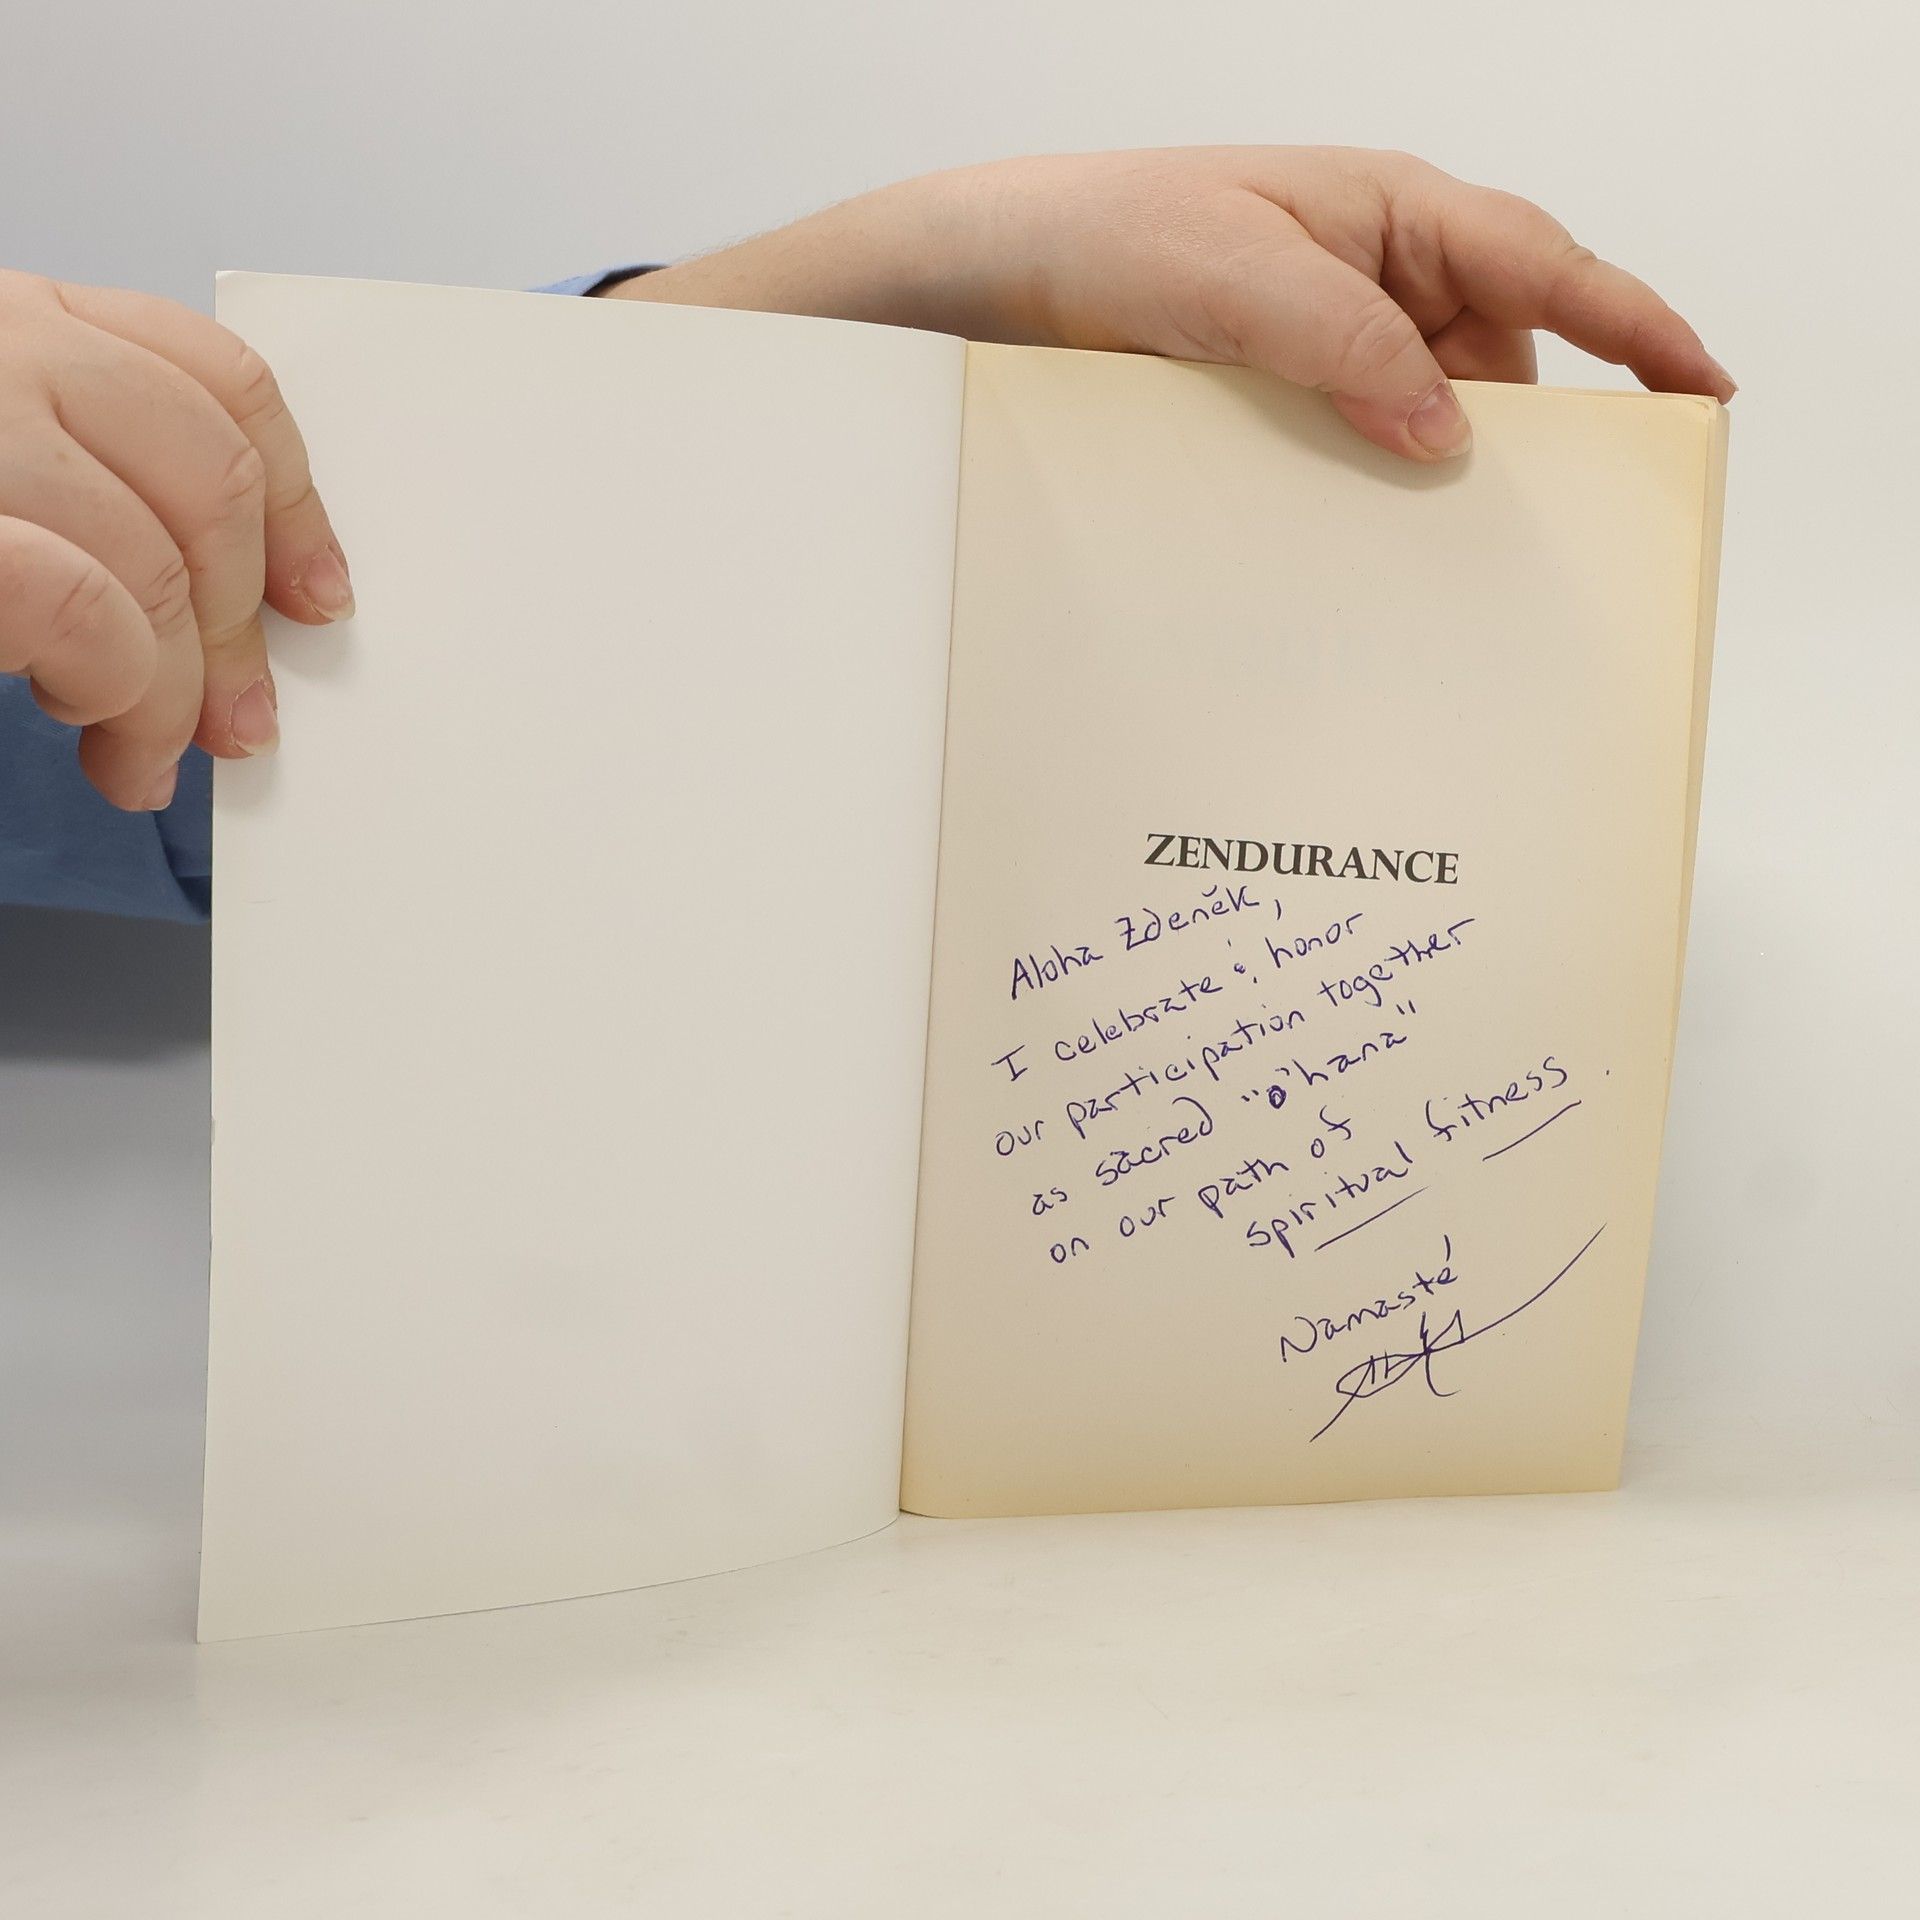 ZENDURANCE
Aloha Zdeněk,
I celebrate & honor
our participation together
as sacred "o'hana"
on our path of
spiritual fitness.
Namasté